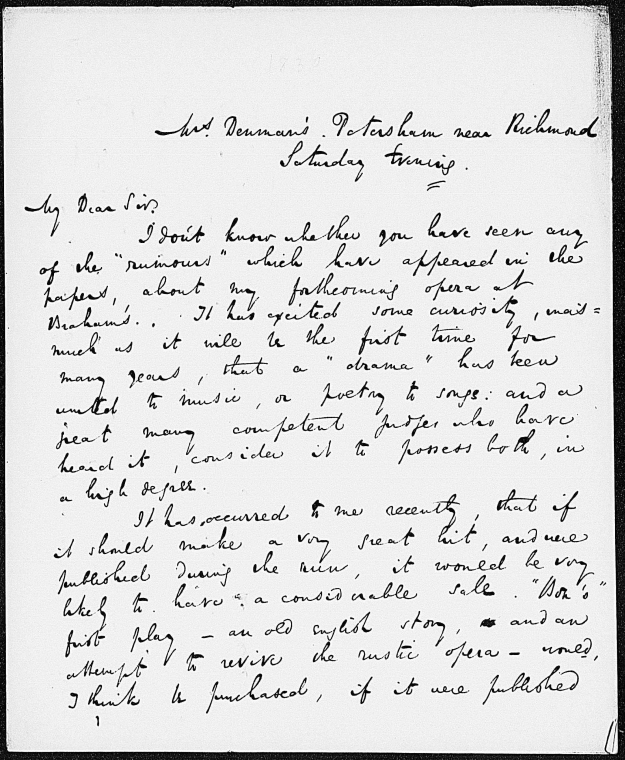 Mrs. Denman's. Petersham near Richmond
Saturday Evening.
My Dear Sir.
I don't know whether you have seen any
of the "rumours" which have appeared in the
papers, about my forthcoming opera at
Braham's. It has excited some curiosity, inas=
much as it will be the first time for
many years, that a "drama" has been
united to music, or poetry to songs: and a
great many competent judges who have
heard it, consider it to possess both, in
a high degree.
It has occurred to me recently, that if
it should make a very great hit, and were
published during the run, it would be very
likely to have a considerable sale. "Boz's"
first play – an old english story, and an
attempt to revive the rustic opera – would,
I think be purchased, if it were published